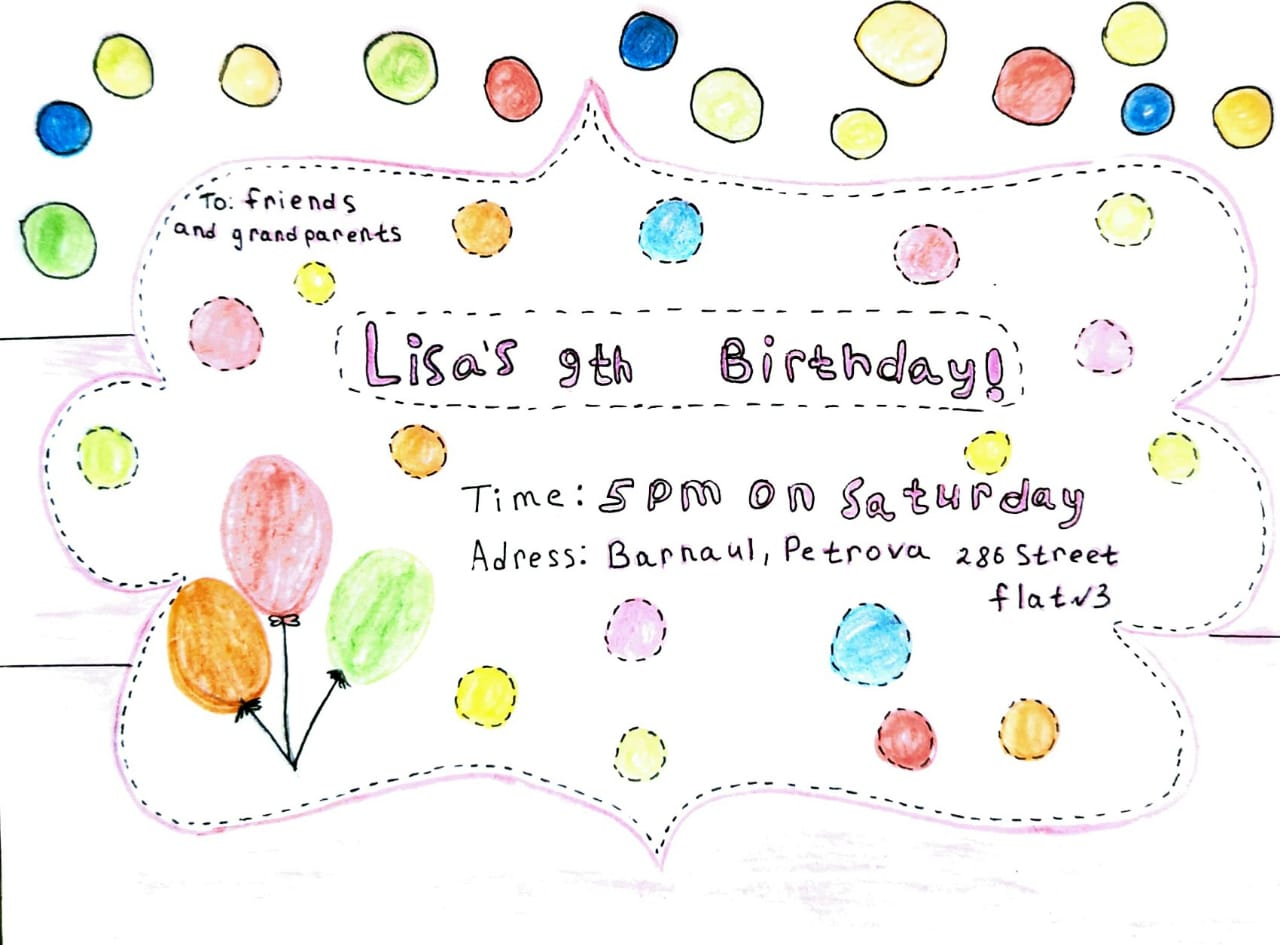 To: friends
and grandparents
Lisa's 9th Birthday!
Time: 5 pm on Saturday
Adress: Barnaul, Petrova 286 Street
flat√3